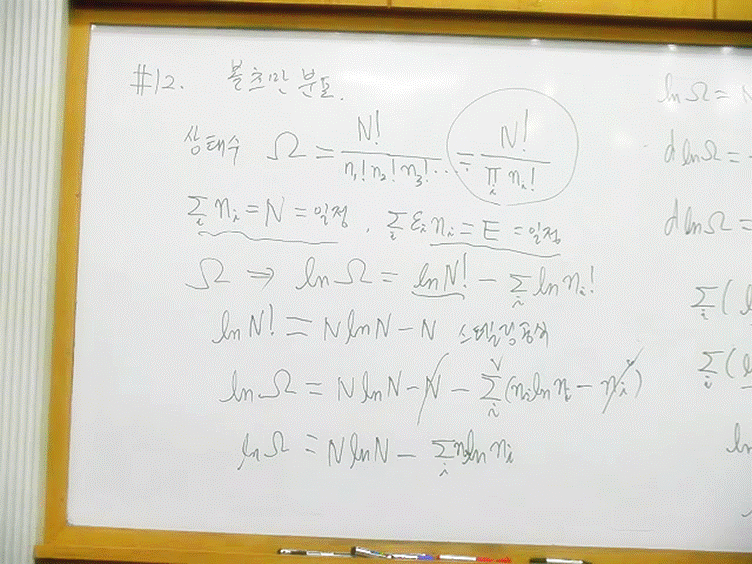 #12. 볼츠만 분포.
상태수 Ω = N! / n₁! n₂! n₃! ⋯ = N! / ∏ᵢ nᵢ!
∑ᵢ nᵢ = N = 일정, ∑ᵢ εᵢ nᵢ = E = 일정
Ω ⇒ ln Ω = ln N! − ∑ᵢ ln nᵢ!
ln N! = N ln N − N 스털링공식
ln Ω = N ln N − N − ∑ᵢ (nᵢ ln nᵢ − nᵢ)
ln Ω = N ln N − ∑ᵢ nᵢ ln nᵢ
ln Ω =
d ln Ω =
d ln Ω =
∑ᵢ (
∑ᵢ (
ln